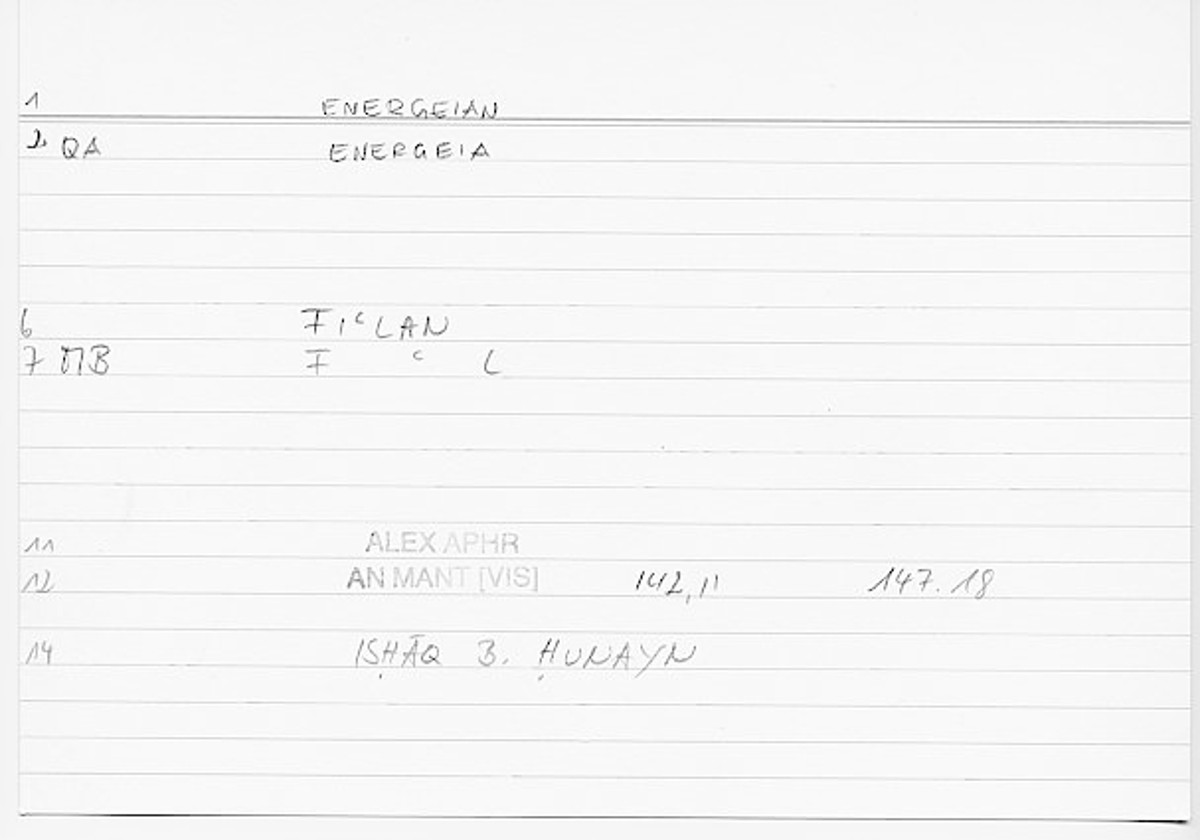 1 ENERGEIAN
2 QA ENERGEIA
6 FIᶜLAN
7 MB F ᶜ L
11 ALEX APHR
12 AN MANT [VIS] 142,11 147.18
14 ISḤĀQ B. ḤUNAYN